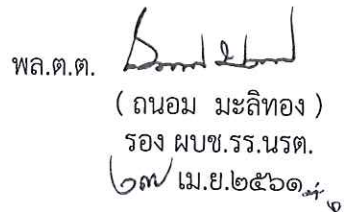 พล.ต.ต.
( ถนอม มะลิทอง )
รอง ผบช.รร.นรต.
๒๗ เม.ย.๒๕๖๑